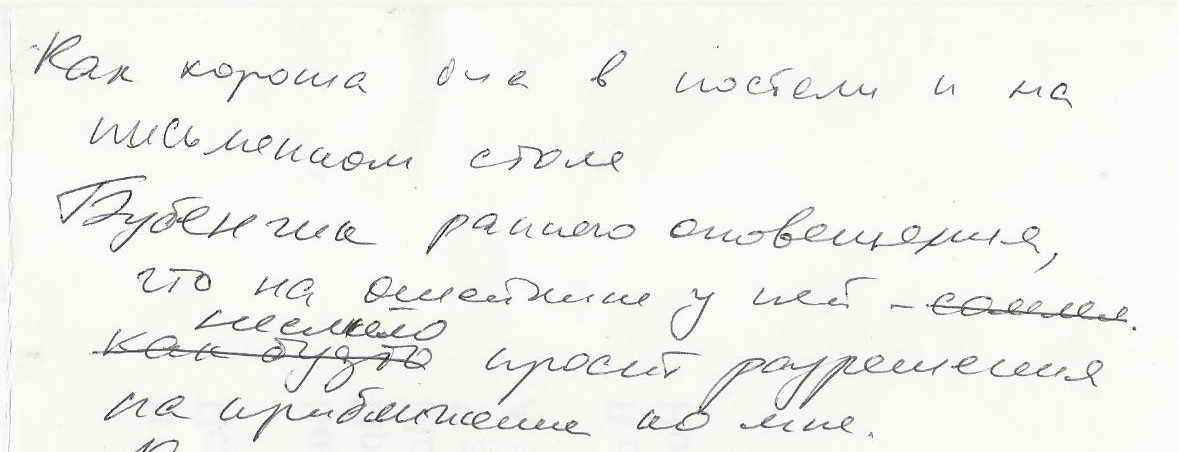 Как хороша она в постели и на
письменном столе
Бубенчик раннего оповещения,
что на ошейнике у ней –
несмело
как будто просит разрешения
на приближение ко мне.